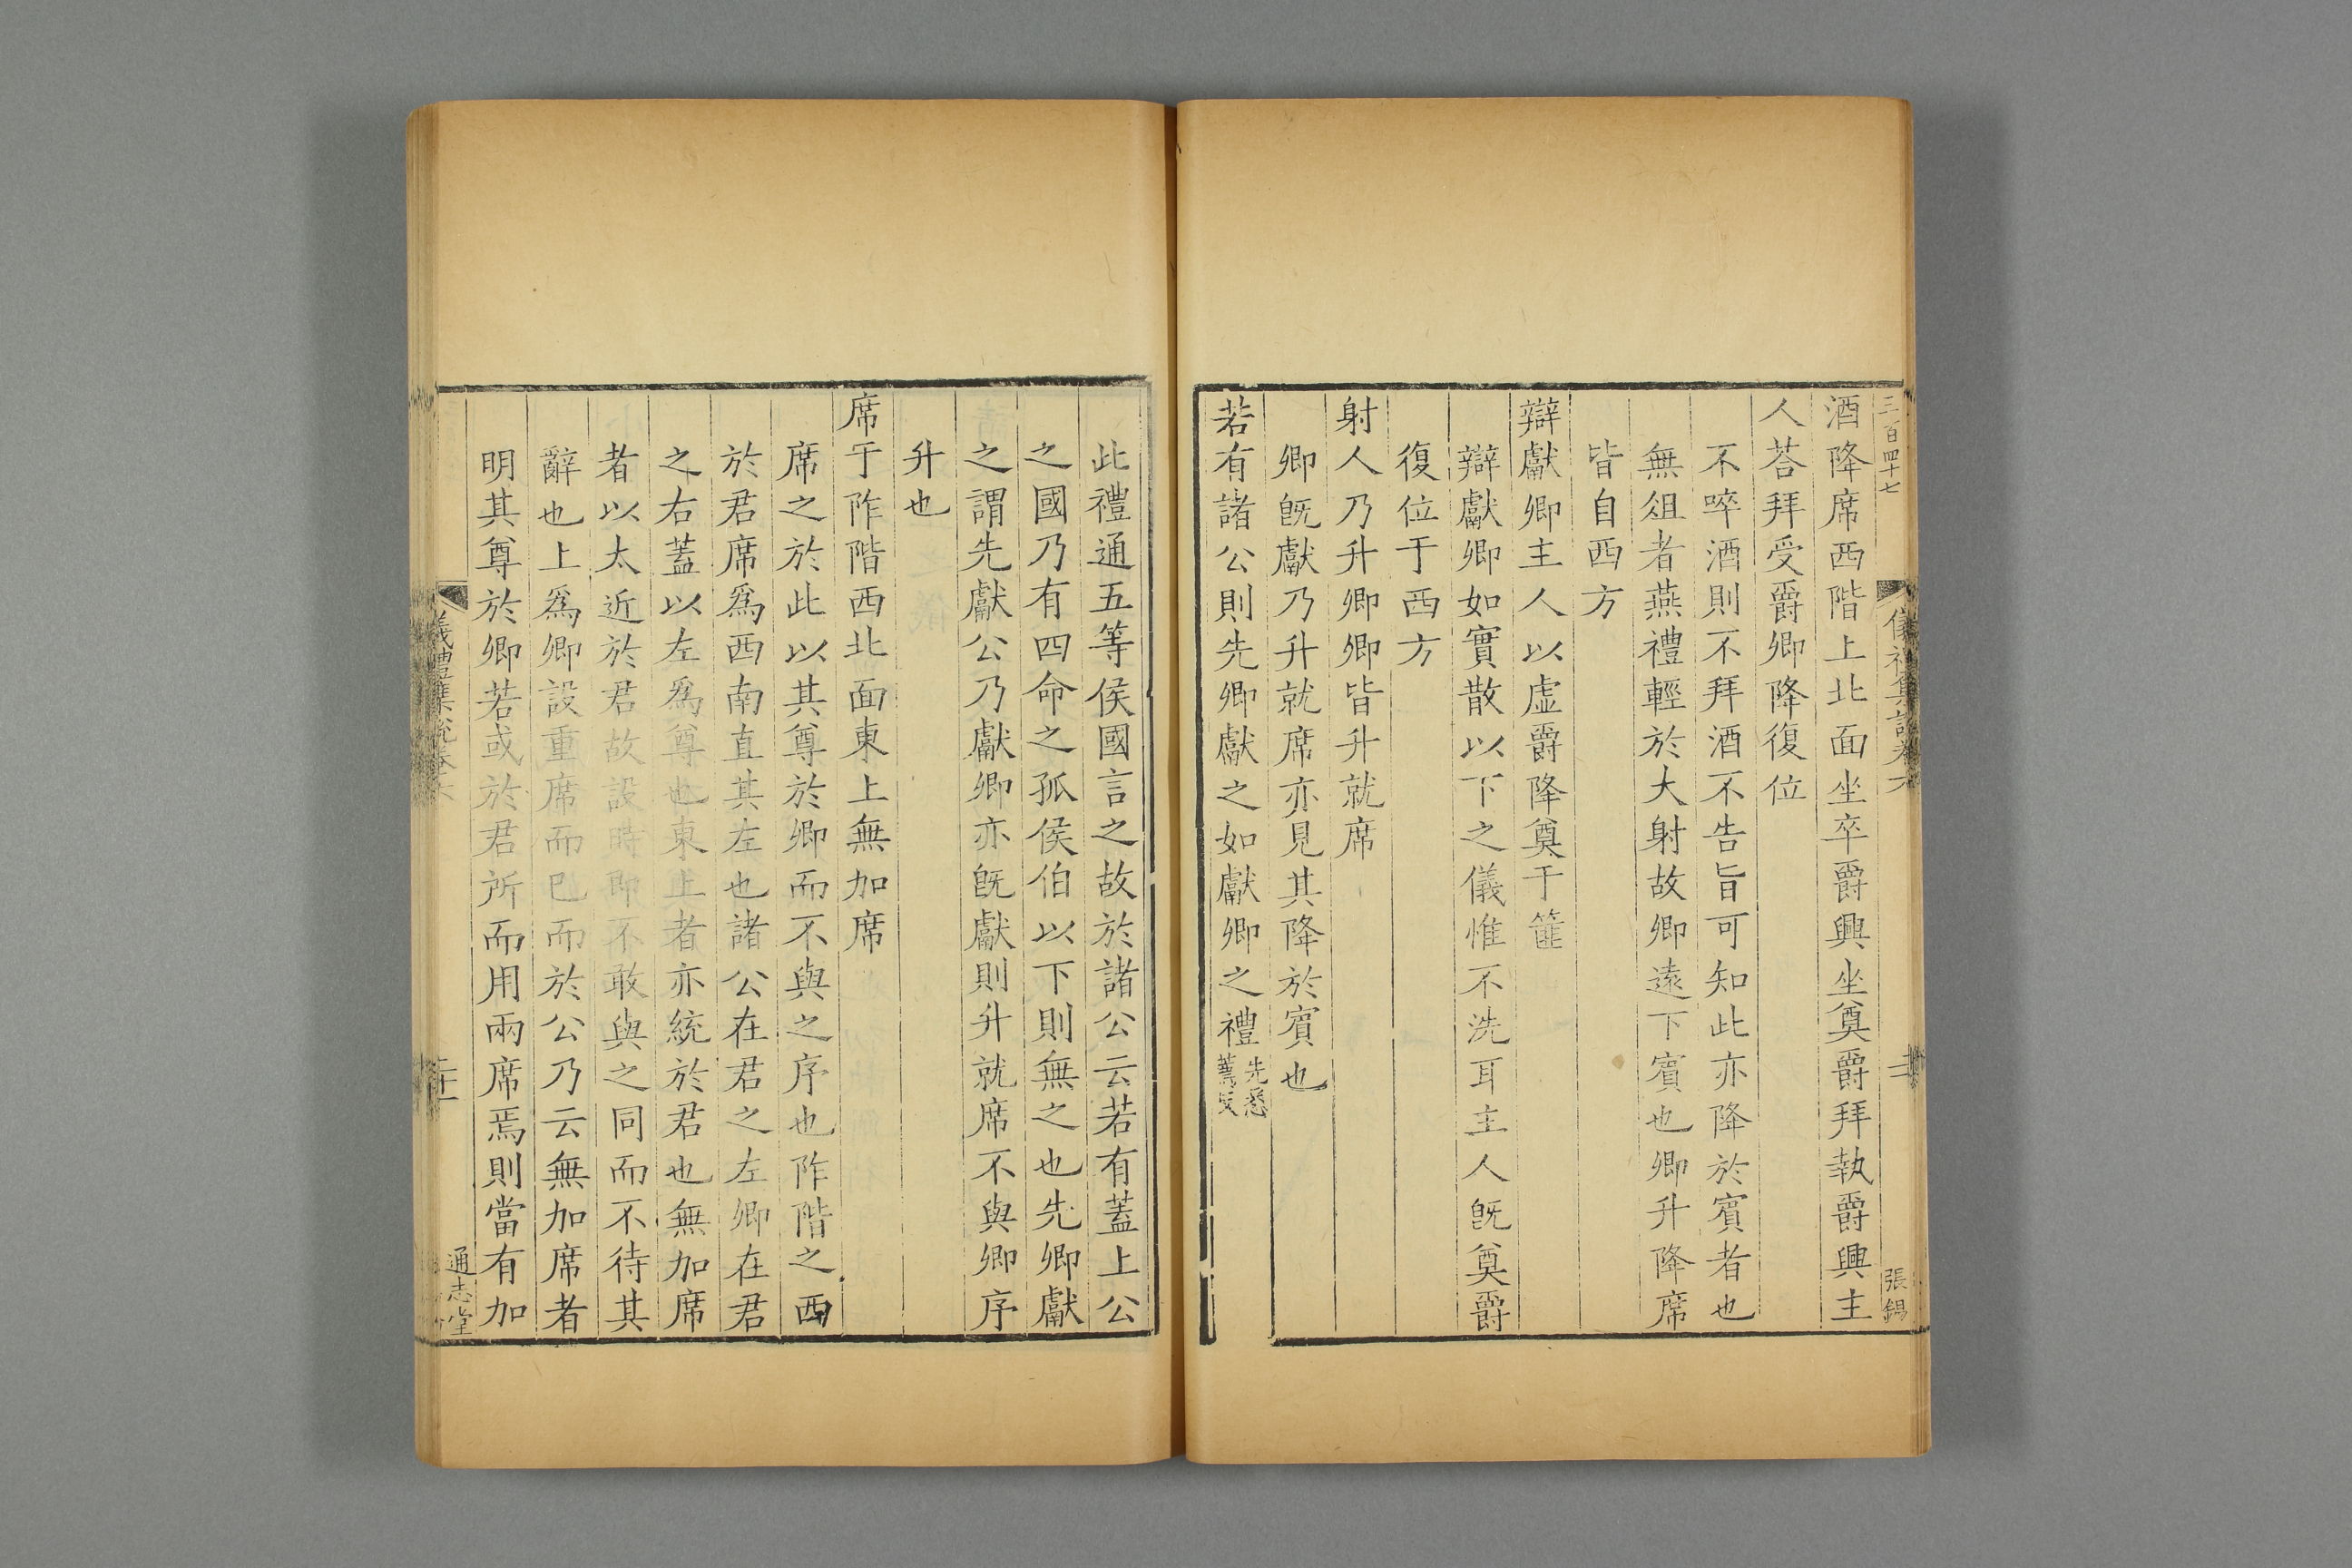 三百四十七
張錫
酒降席西階上北面坐卒爵興坐奠爵拜執爵興主
人荅拜受爵卿降復位
不啐酒則不拜酒不告旨可知此亦降於賓者也
無俎者燕禮輕於大射故卿遠下賓也卿升降席
皆自西方
辯獻卿主人以虛爵降奠于篚
辯獻卿如實散以下之儀惟不洗耳主人旣奠爵
復位于西方
射人乃升卿卿皆升就席
卿旣獻乃升就席亦見其降於賓也
若有諸公則先卿獻之如獻卿之禮先悉薦反
此禮通五等侯國言之故於諸公云若有蓋上公
之國乃有四命之孤侯伯以下則無之也先卿獻
之謂先獻公乃獻卿亦旣獻則升就席不與卿序
升也
席于阼階西北面東上無加席
席之於此以其尊於卿而不與之序也阼階之西
於君席爲西南直其左也諸公在君之左卿在君
之右蓋以左爲尊也東上者亦統於君也無加席
者以太近於君故設時即不敢與之同而不待其
辭也上爲卿設重席而已而於公乃云無加席者
明其尊於卿若或於君所而用兩席焉則當有加
儀禮集說卷六
通志堂